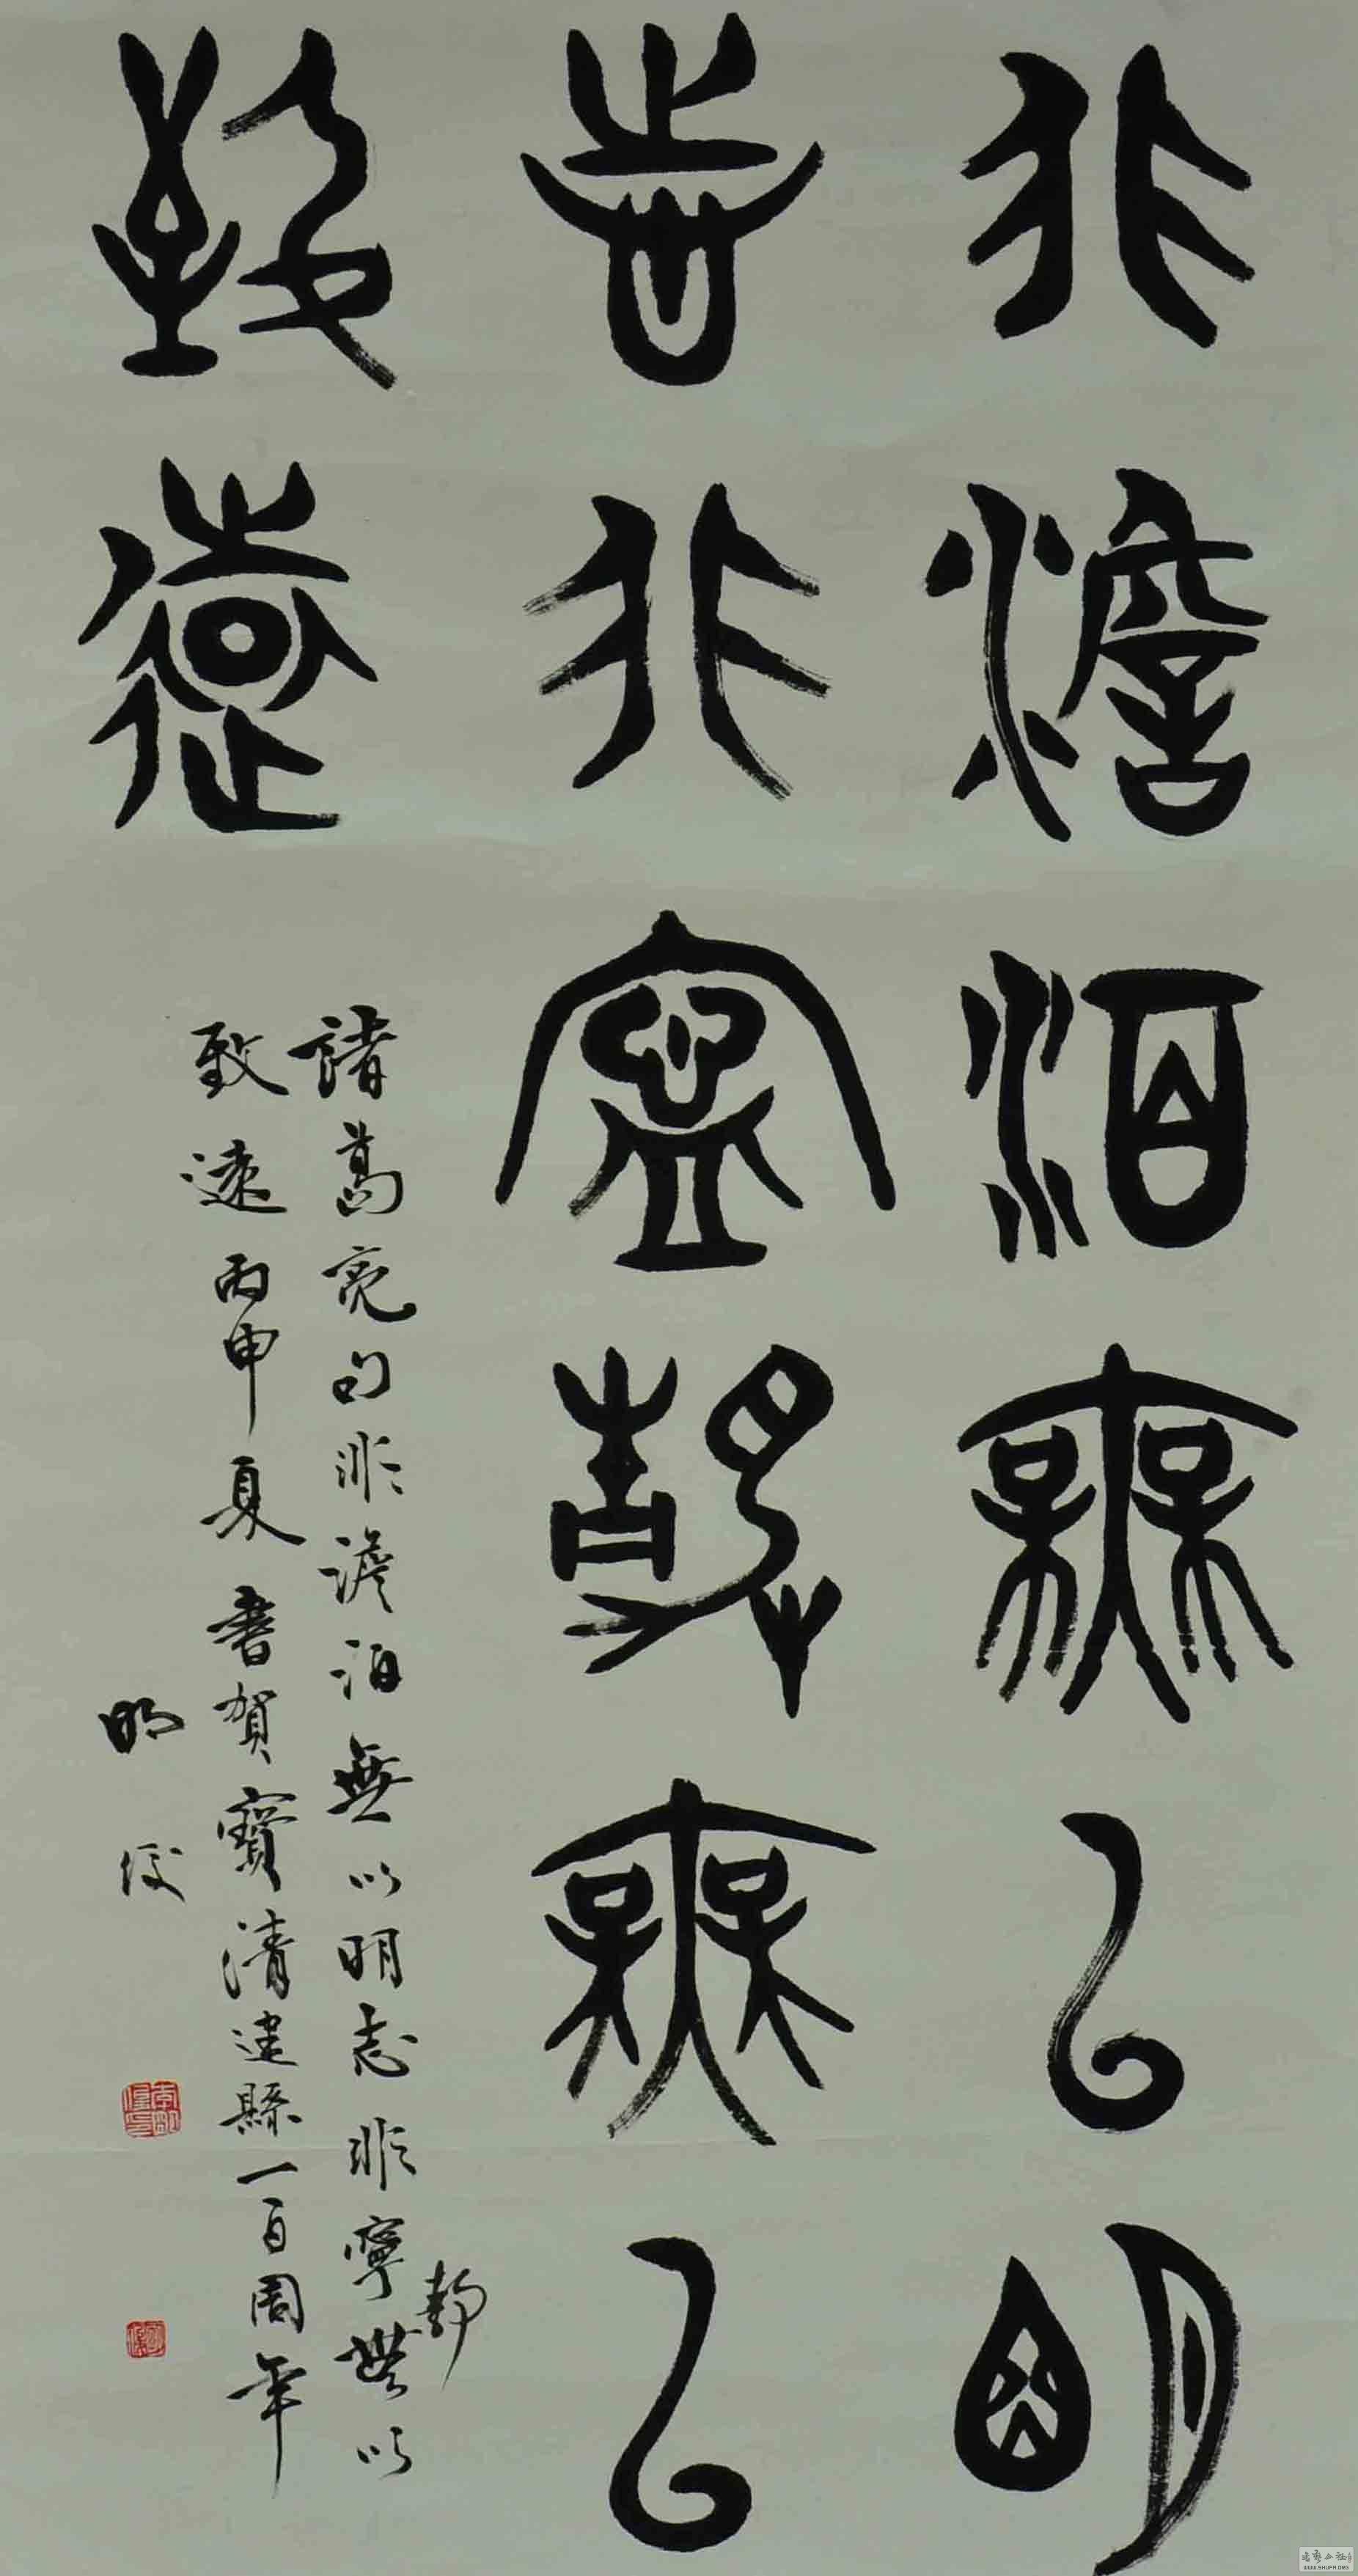 非澹泊無以明
志非寧靜無以
致遠
諸葛亮句非澹泊無以明志非寧靜無以
致遠丙申夏書賀寶清建縣一百周年
明俊
WWW.SHUFA.ORG